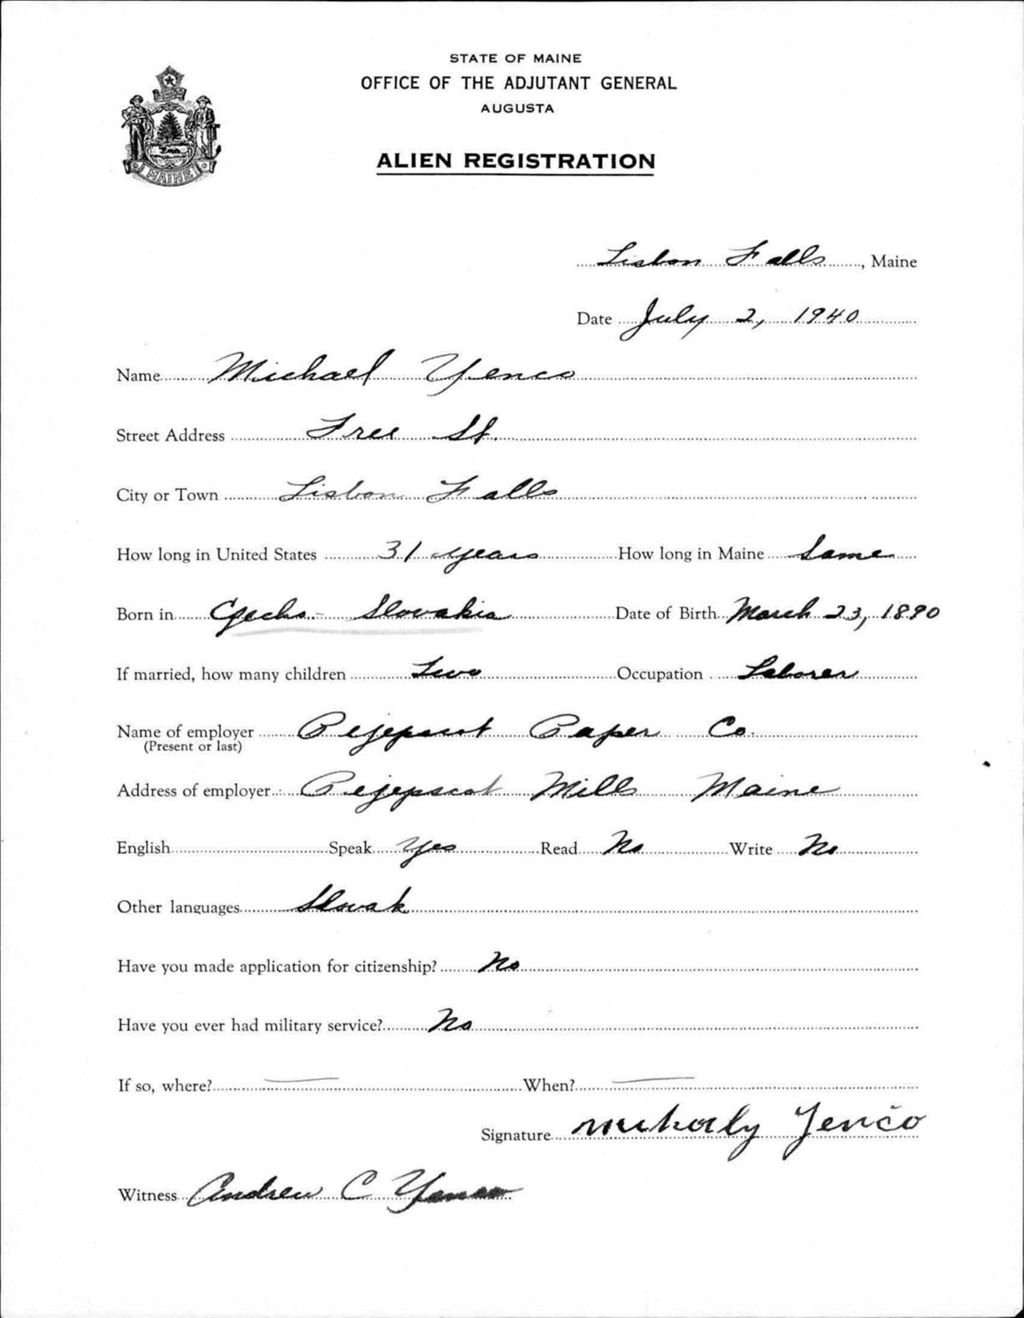 STATE OF MAINE
OFFICE OF THE ADJUTANT GENERAL
AUGUSTA
ALIEN REGISTRATION
MAINE
Lisbon Falls, Maine
Date July 2, 1940
Name Michael Yenco
Street Address Free St.
City or Town Lisbon Falls
How long in United States 31 years How long in Maine Same
Born in Czecho-Slovakia Date of Birth March 23, 1890
If married, how many children Two Occupation Laborer
Name of employer Pejepscot Paper Co.
(Present or last)
Address of employer Pejepscot Mills Maine
English Speak Yes Read No Write No
Other languages Slovak
Have you made application for citizenship? No
Have you ever had military service? No
If so, where? — When? —
Signature Yenčo
Witness Andrew C